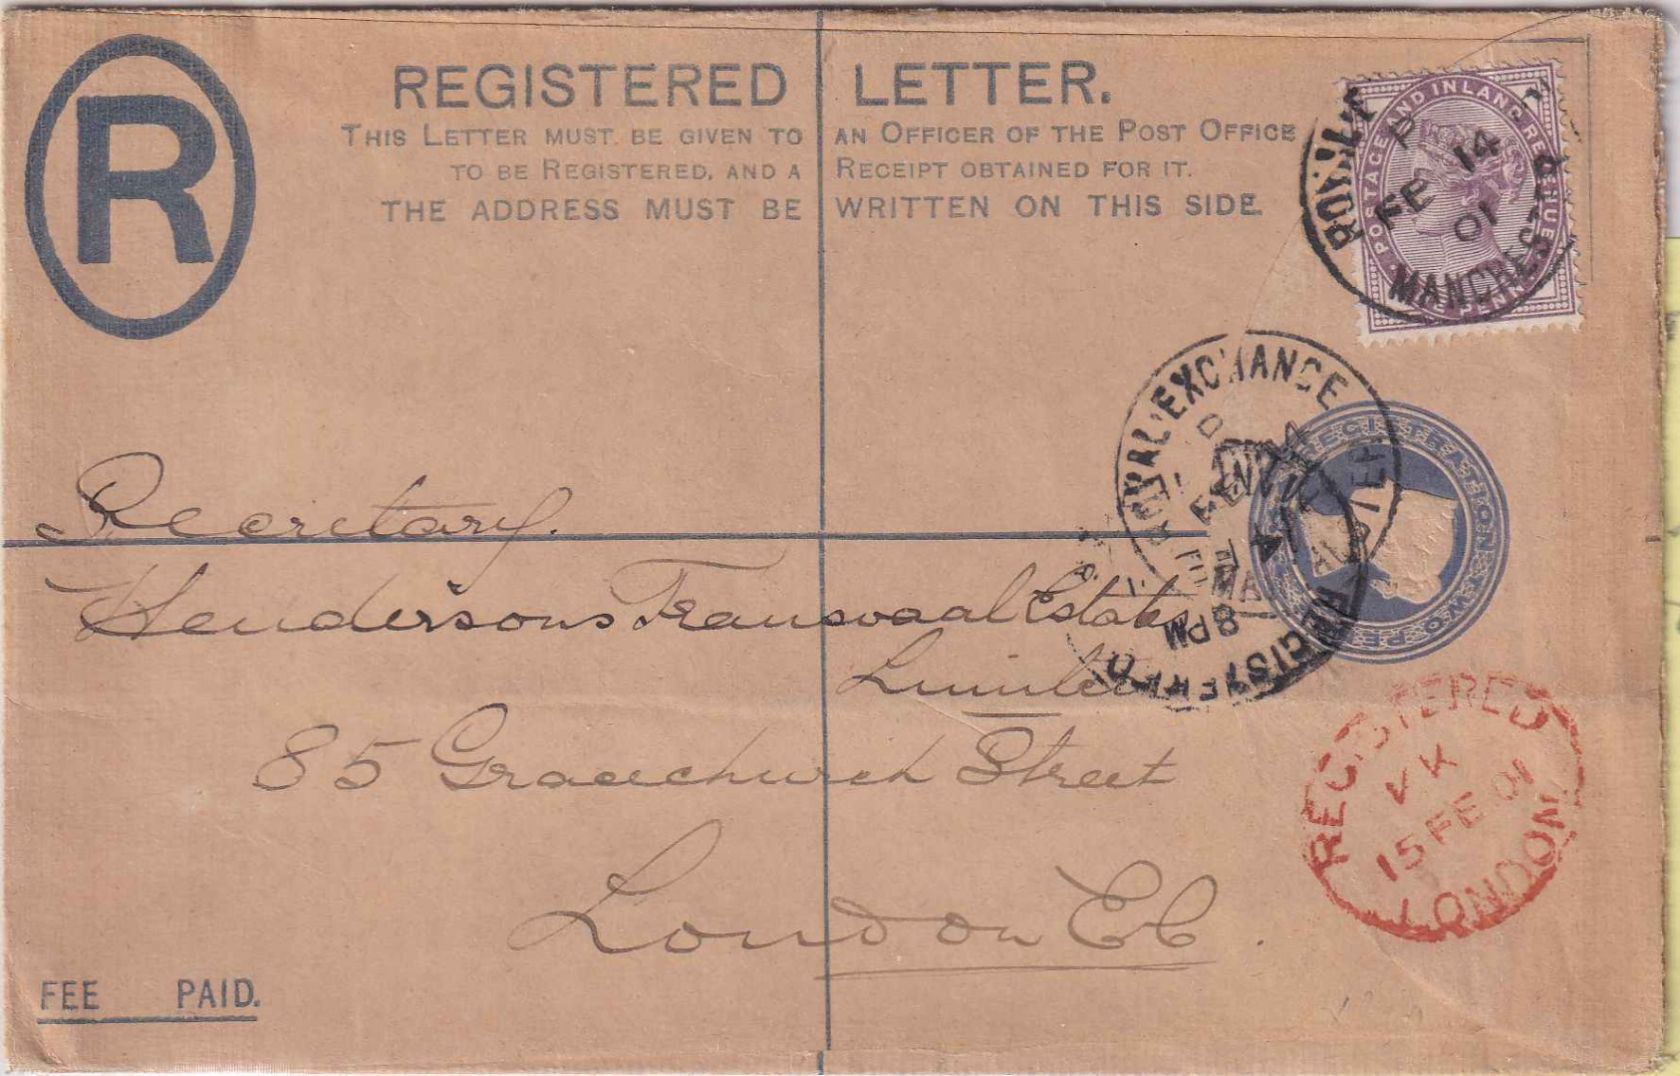 R
REGISTERED LETTER.
THIS LETTER MUST BE GIVEN TO AN OFFICER OF THE POST OFFICE
TO BE REGISTERED, AND A RECEIPT OBTAINED FOR IT.
THE ADDRESS MUST BE WRITTEN ON THIS SIDE.
POSTAGE AND INLAND REVENUE
ONE PENNY
FE 14
01
MANCHESTER
ROYAL EXCHANGE
REGISTRATION TWO PE
8PM
REGISTERED
Secretary.
Hendersons Transvaal Estates
Limited
85 Gracechurch Street
London EC.
REGISTERED
15 FE 01
LONDON
FEE PAID.